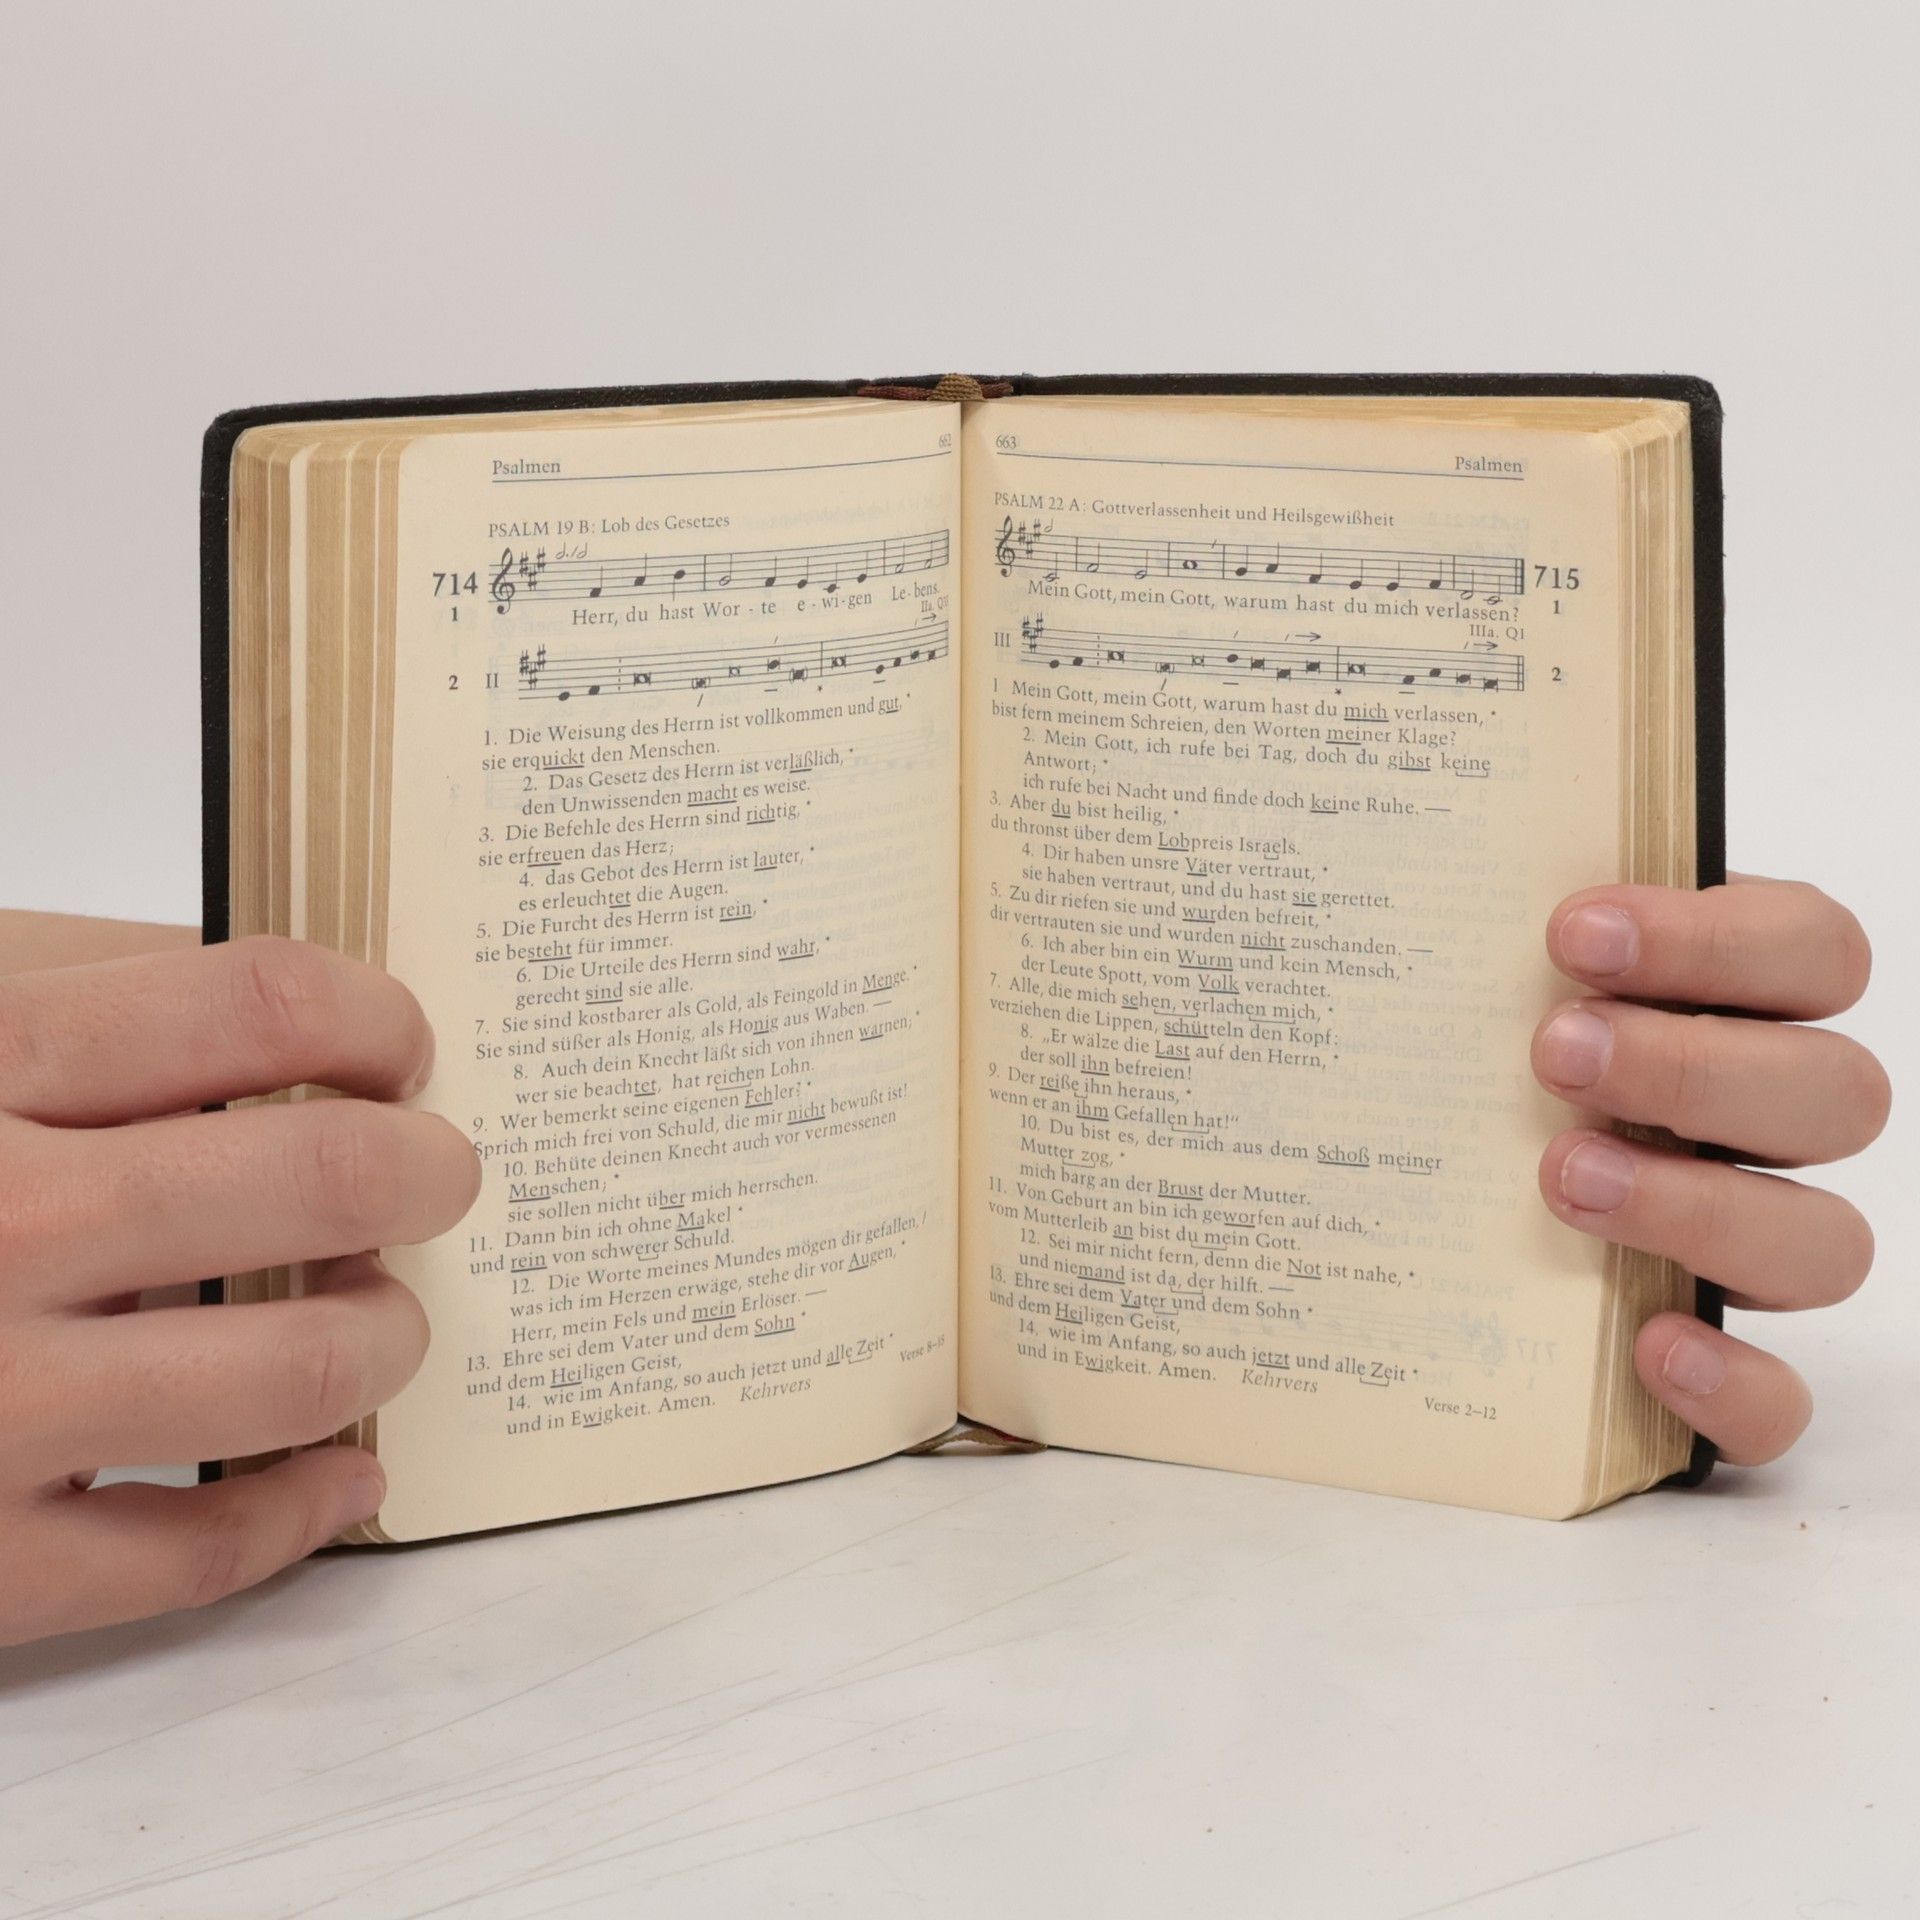 662
Psalmen
PSALM 19 B: Lob des Gesetzes
714
1
Herr, du hast Wor - te e - wi - gen Le - bens.
IIa. QII
2 II
1. Die Weisung des Herrn ist vollkommen und gut, *
sie erquickt den Menschen.
2. Das Gesetz des Herrn ist verläßlich, *
den Unwissenden macht es weise.
3. Die Befehle des Herrn sind richtig, *
sie erfreuen das Herz;
4. das Gebot des Herrn ist lauter, *
es erleuchtet die Augen.
5. Die Furcht des Herrn ist rein, *
sie besteht für immer.
6. Die Urteile des Herrn sind wahr, *
gerecht sind sie alle.
7. Sie sind kostbarer als Gold, als Feingold in Menge. *
Sie sind süßer als Honig, als Honig aus Waben. —
8. Auch dein Knecht läßt sich von ihnen warnen; *
wer sie beachtet, hat reichen Lohn.
9. Wer bemerkt seine eigenen Fehler? *
Sprich mich frei von Schuld, die mir nicht bewußt ist!
10. Behüte deinen Knecht auch vor vermessenen
Menschen; *
sie sollen nicht über mich herrschen.
11. Dann bin ich ohne Makel *
und rein von schwerer Schuld.
12. Die Worte meines Mundes mögen dir gefallen, /
was ich im Herzen erwäge, stehe dir vor Augen, *
Herr, mein Fels und mein Erlöser. —
13. Ehre sei dem Vater und dem Sohn *
und dem Heiligen Geist,
14. wie im Anfang, so auch jetzt und alle Zeit *
und in Ewigkeit. Amen. Kehrvers
Verse 8–15
663
Psalmen
PSALM 22 A: Gottverlassenheit und Heilsgewißheit
715
1
Mein Gott, mein Gott, warum hast du mich verlassen?
IIIa. QI
III 2
1 Mein Gott, mein Gott, warum hast du mich verlassen, *
bist fern meinem Schreien, den Worten meiner Klage?
2. Mein Gott, ich rufe bei Tag, doch du gibst keine
Antwort; *
ich rufe bei Nacht und finde doch keine Ruhe. —
3. Aber du bist heilig, *
du thronst über dem Lobpreis Israels.
4. Dir haben unsre Väter vertraut, *
sie haben vertraut, und du hast sie gerettet.
5. Zu dir riefen sie und wurden befreit, *
dir vertrauten sie und wurden nicht zuschanden. —
6. Ich aber bin ein Wurm und kein Mensch, *
der Leute Spott, vom Volk verachtet.
7. Alle, die mich sehen, verlachen mich, *
verziehen die Lippen, schütteln den Kopf:
8. „Er wälze die Last auf den Herrn, *
der soll ihn befreien!
9. Der reiße ihn heraus, *
wenn er an ihm Gefallen hat!“
10. Du bist es, der mich aus dem Schoß meiner
Mutter zog, *
mich barg an der Brust der Mutter.
11. Von Geburt an bin ich geworfen auf dich, *
vom Mutterleib an bist du mein Gott.
12. Sei mir nicht fern, denn die Not ist nahe, *
und niemand ist da, der hilft. —
13. Ehre sei dem Vater und dem Sohn *
und dem Heiligen Geist,
14. wie im Anfang, so auch jetzt und alle Zeit *
und in Ewigkeit. Amen. Kehrvers
Verse 2–12